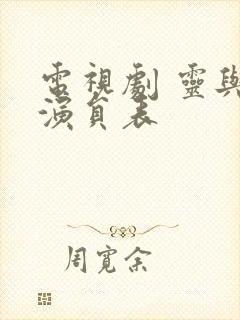 電視劇 靈與
演員表
周寬余